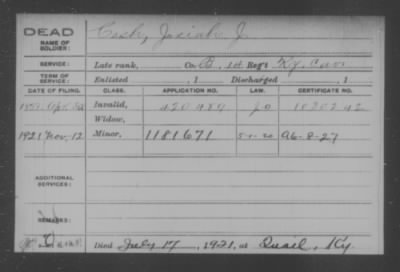 DEAD
NAME OF SOLDIER: Cash, Josiah J.
SERVICE: Late rank, Co. B, 1st Reg't Ky. Cav.
TERM OF SERVICE: Enlisted , 1 Discharged , 1
DATE OF FILING. CLASS. APPLICATION NO. LAW. CERTIFICATE NO.
Invalid,
Widow,
1921 Nov, 12 Minor, 1181671 5-1-20 A6-8-27
ADDITIONAL SERVICES:
REMARKS:
Died July 17, 1921, at Quail, Ky.